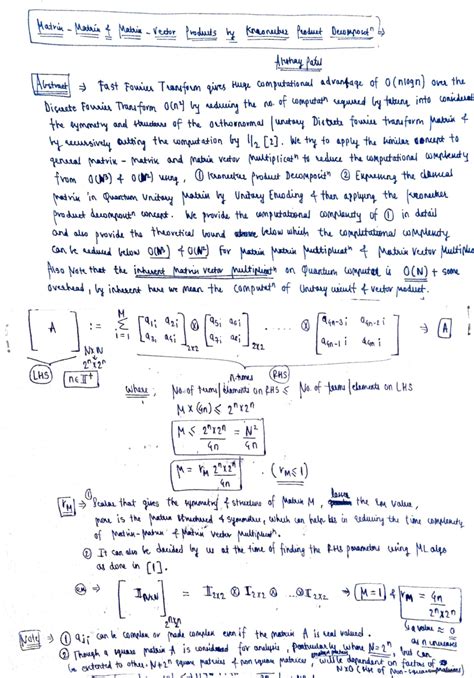 Matrix-Matrix & Matrix-Vector Products by Kronecker Product Decompositⁿ
Akshay Patel
Abstract ⇒ Fast Fourier Transform gives huge computational advantage of O(nlogn) over the
Discrete Fourier Transform O(n²) by reducing the no. of computatⁿ required by taking into considerat
the symmetry and structure of the orthonormal/unitary Discrete fourier transform Matrix &
by recursively cutting the computation by 1/2 [2]. We try to apply the similar concept to
general matrix-matrix and matrix vector multiplicatⁿ to reduce the computational complexity
from O(N³) & O(N²) using, ① Kronecker Product Decompositⁿ ② Expressing the classical
matrix in Quantum Unitary Matrix by Unitary Encoding & then applying the kronecker
product decompositⁿ concept. We provide the computational complexity of ① in detail
and also provide the theoretical bound below which the complexity
can be reduced below O(N³) & O(N²) for Matrix Matrix Multiplicatⁿ & Matrix Vector Multiplic
Also Note that the inherent matrix vector multiplicatⁿ on Quantum computer is O(N) + some
overhead, by inherent here we mean the computatⁿ of Unitary circuit & vector product.
[A] := M Σ i=1 [a₁ᵢ a₂ᵢ a₃ᵢ a₄ᵢ]₂ₓ₂ ⊗ [a₅ᵢ a₆ᵢ]₂ₓ₂ ..... ⊗ [a₄ₙ₋₃ᵢ a₄ₙ₋₂ᵢ a₄ₙ₋₁ᵢ a₄ₙᵢ] → A
N×N
2ⁿ×2ⁿ
LHS n∈I⁺ n-times RHS
where; No. of terms/elements on RHS ≤ No. of terms/elements on LHS
M×(4n) ≤ 2ⁿ×2ⁿ
M ≤ 2ⁿ×2ⁿ/4n = N²/4n
M = r_M 2ⁿ×2ⁿ/4n (r_M ≤ 1)
r_M → ① Scalar that gives the symmetry & structure of Matrix M, lower the r_M value,
more is the matrix structured & symmetric, which can help in reducing the time complexity
of matrix-matrix & Matrix vector multiplicatⁿ.
② It can also be decided by us at the time of finding the RHS parameters using ML algo
as done in [1].
ex ⇒ [I_N×N] 2ⁿ×2ⁿ = I₂ₓ₂ ⊗ I₂ₓ₂ ⊗ ...⊗ I₂ₓ₂ → M=1 & r_M = 4n/2ⁿ×2ⁿ
& value ≈ 0
as n increases
Note ⇒ ① aᵢⱼ can be complex or made complex even if the matrix A is real valued.
② Though a square matrix A is considered for analysis, particularly when N=2ⁿ, but can
be extended to other N≠2ⁿ square matrices & non square matrices, will be dependent on factor of
N×O (for of non-square matrices)